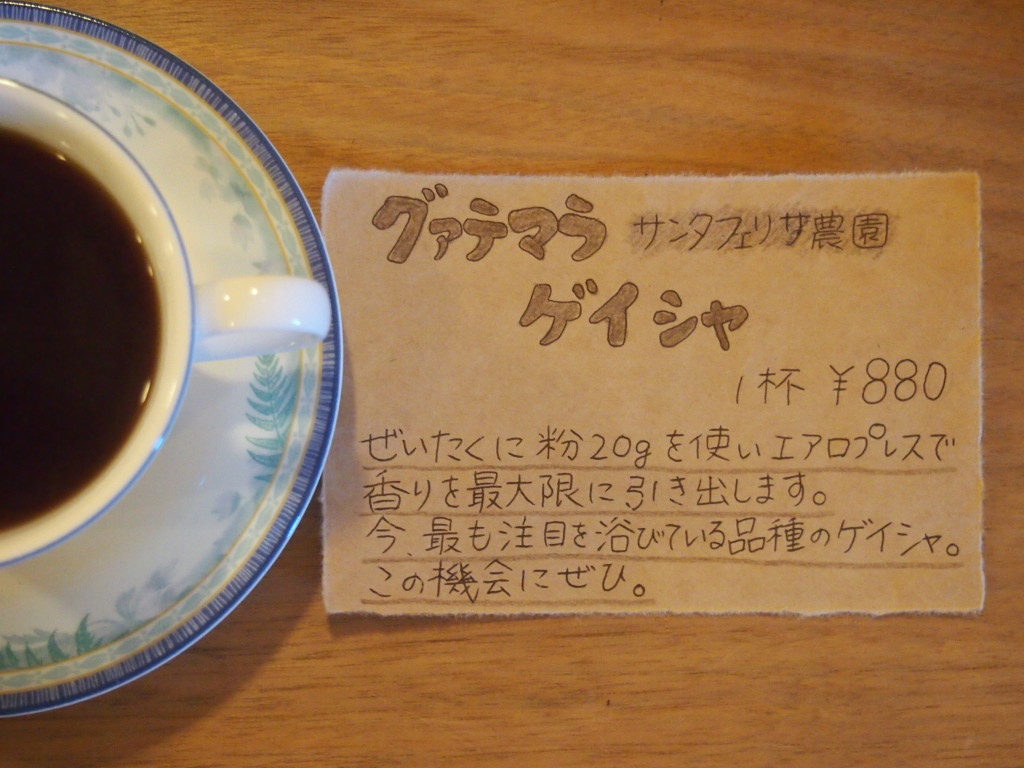 グァテマラ サンタフェリサ農園
ゲイシャ
1杯 ¥880
ぜいたくに粉20gを使いエアロプレスで
香りを最大限に引き出します。
今、最も注目を浴びている品種のゲイシャ。
この機会にぜひ。